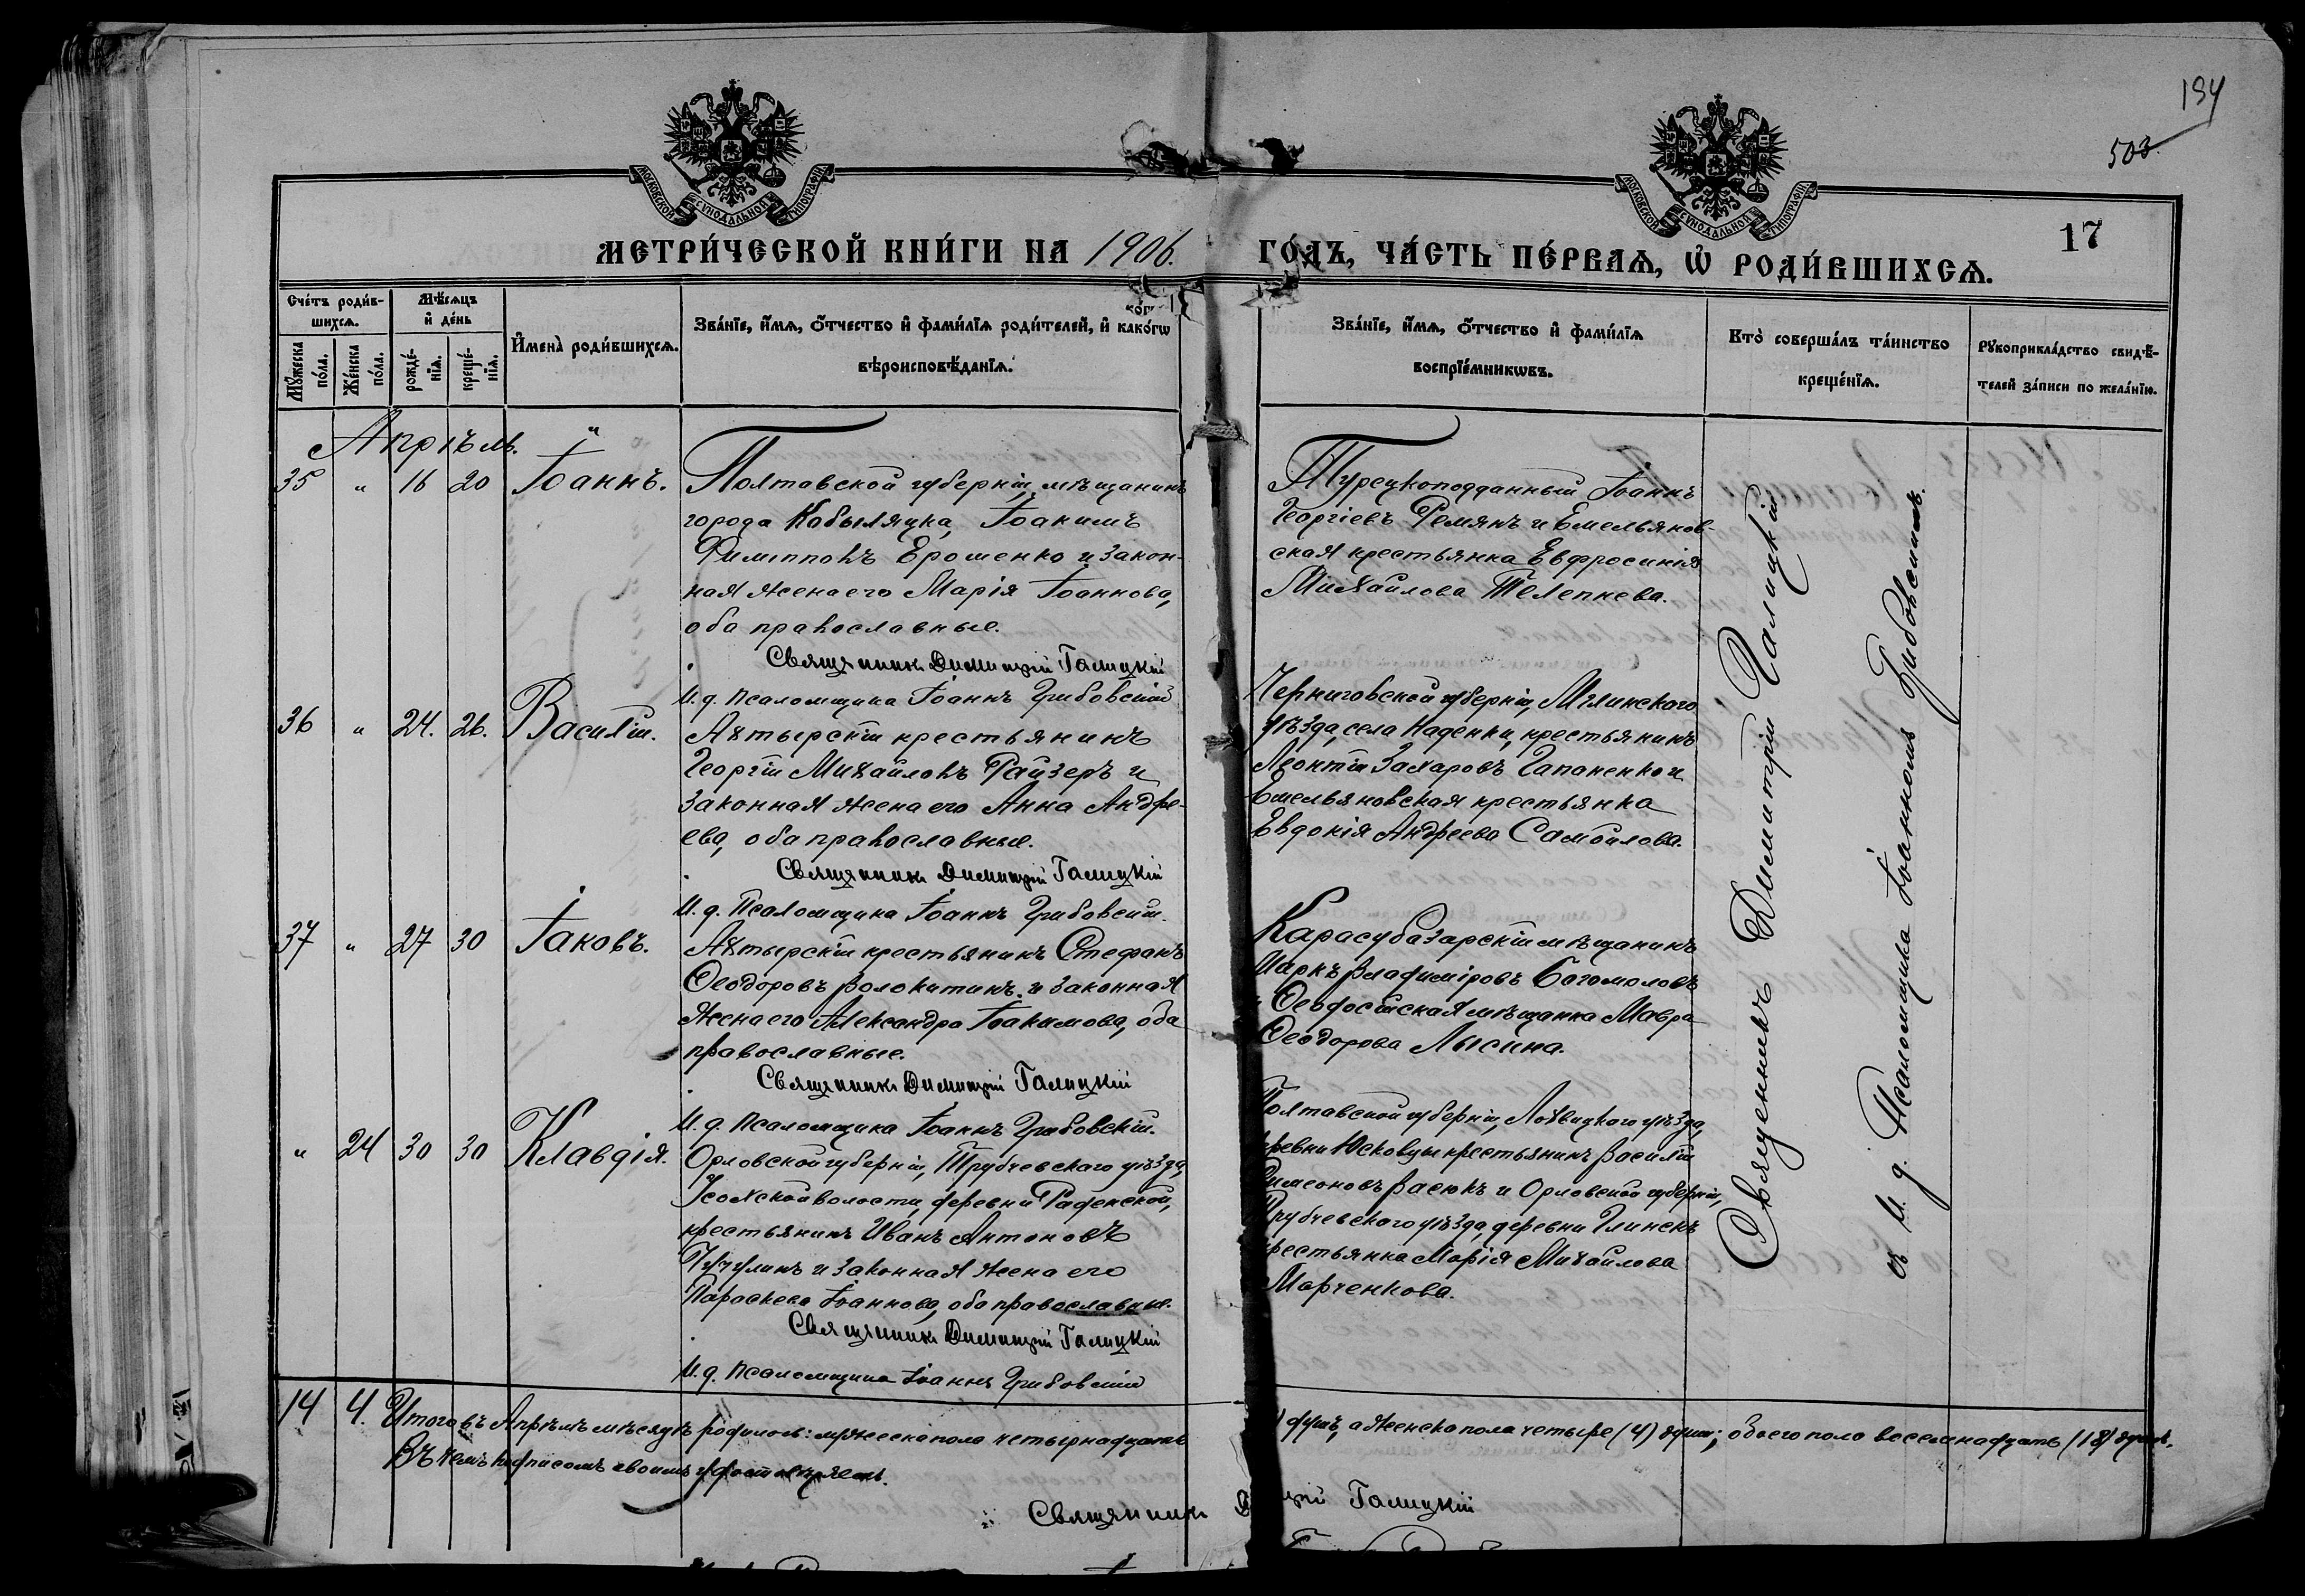 194
503.
МОСКОВСКОЙ СѴНОДАЛЬНОЙ ТИПОГРАФІИ
МОСКОВСКОЙ СѴНОДАЛЬНОЙ ТИПОГРАФІИ
МЕТРИ́ЧЕСКОЙ КНИ́ГИ НА 1906. ГО́ДЪ, ЧА́СТЬ ПЕ́РВАѦ, Ѡ҆ РОДИ́ВШИХСѦ. 17
Сче́тъ роди́в-
шихсѧ.
Мꙋ́жеска по́ла.
Же́нска по́ла.
Мѣ́сѧцъ
и҆ де́нь
рожде́-
нїѧ.
креще́-
нїѧ.
И҆мена̀ роди́вшихсѧ.
Зва́нїе, и҆́мѧ, ѻ҆́тчество и҆ фами́лїѧ роди́телей, и҆ како́гѡ
вѣроисповѣ́данїѧ.
Зва́нїе, и҆́мѧ, ѻ҆́тчество и҆ фами́лїѧ
воспрїе́мникѡвъ.
Кто̀ соверша́лъ та́инство
креще́нїѧ.
Рꙋкоприкла́дство свидѣ́-
телей за́писи по жела́нїю.
Апрѣль.
35 " 16 20 Іоаннъ.
Полтавской губерніи, мѣщанинъ
города Кобыляцка, Іоакимъ
Филипповъ Ерошенко и закон-
ная жена его Марія Іоаннова,
оба православные.
Священникъ Димитрій Галицкій
И. д. псаломщика Іоаннъ Грибовскій
Турецкоподданный Іоаннъ
Георгіевъ Ремянъ и Емельянов-
ская крестьянка Евфросинія
Михайлова Телепнева.
36 " 24. 26. Василій.
Ахтырскій крестьянинъ
Георгій Михайловъ Райзеръ и
законная жена его Анна Андре-
ева, оба православные.
Священникъ Димитрій Галицкій
И. д. Псаломщика Іоаннъ Грибовскій.
Черниговской губерніи, Мглинского
уѣзда, села Наденки, крестьянинъ
Леонтій Захаровъ Гапаненко и
Емельяновская крестьянка
Евдокія Андреева Самойлова.
37 " 27 30 Іаковъ.
Ахтырскій крестьянинъ Стефанъ
Ѳеодоровъ Волокитинъ и законная
жена его Александра Іоакимова, оба
православные.
Священникъ Димитрій Галицкій
И. д. Псаломщика Іоаннъ Грибовскій.
Карасубазарскій мѣщанинъ
Маркъ Владиміровъ Богомоловъ
и Ѳеодосійская мѣщанка Мавра
Ѳеодорова Лысина.
" 24 30 30 Клавдія.
Орловской губерніи, Трубчевского уѣзда,
Усожской волости, деревни Раденской,
крестьянинъ Иванъ Антоновъ
Чучулинъ и законная жена его
Параскева Іоаннова, оба православные.
Священникъ Димитрій Галицкій
И. д. псаломщика Іоаннъ Грибовскій
Полтавской губерніи, Лохвицкого уѣзда,
деревни Юсковцы крестьянинъ Василій
Симеоновъ Васюкъ и Орловской губерніи,
Трубчевского уѣзда, деревни Глинскъ
крестьянка Марія Михайлова
Марченкова.
Священникъ Димитрій Галицкій
съ И. д. Псаломщика Іоанномъ Грибовскимъ.
14 4. Итого въ Апрѣлѣ мѣсяцѣ родилось: мужеска пола четырнадцать ) душъ, а женска пола четыре (4) души; обоего пола восемнадцать (18) душъ.
Въ чемъ подписомъ своимъ удостовѣряемъ.
Священникъ Галицкій